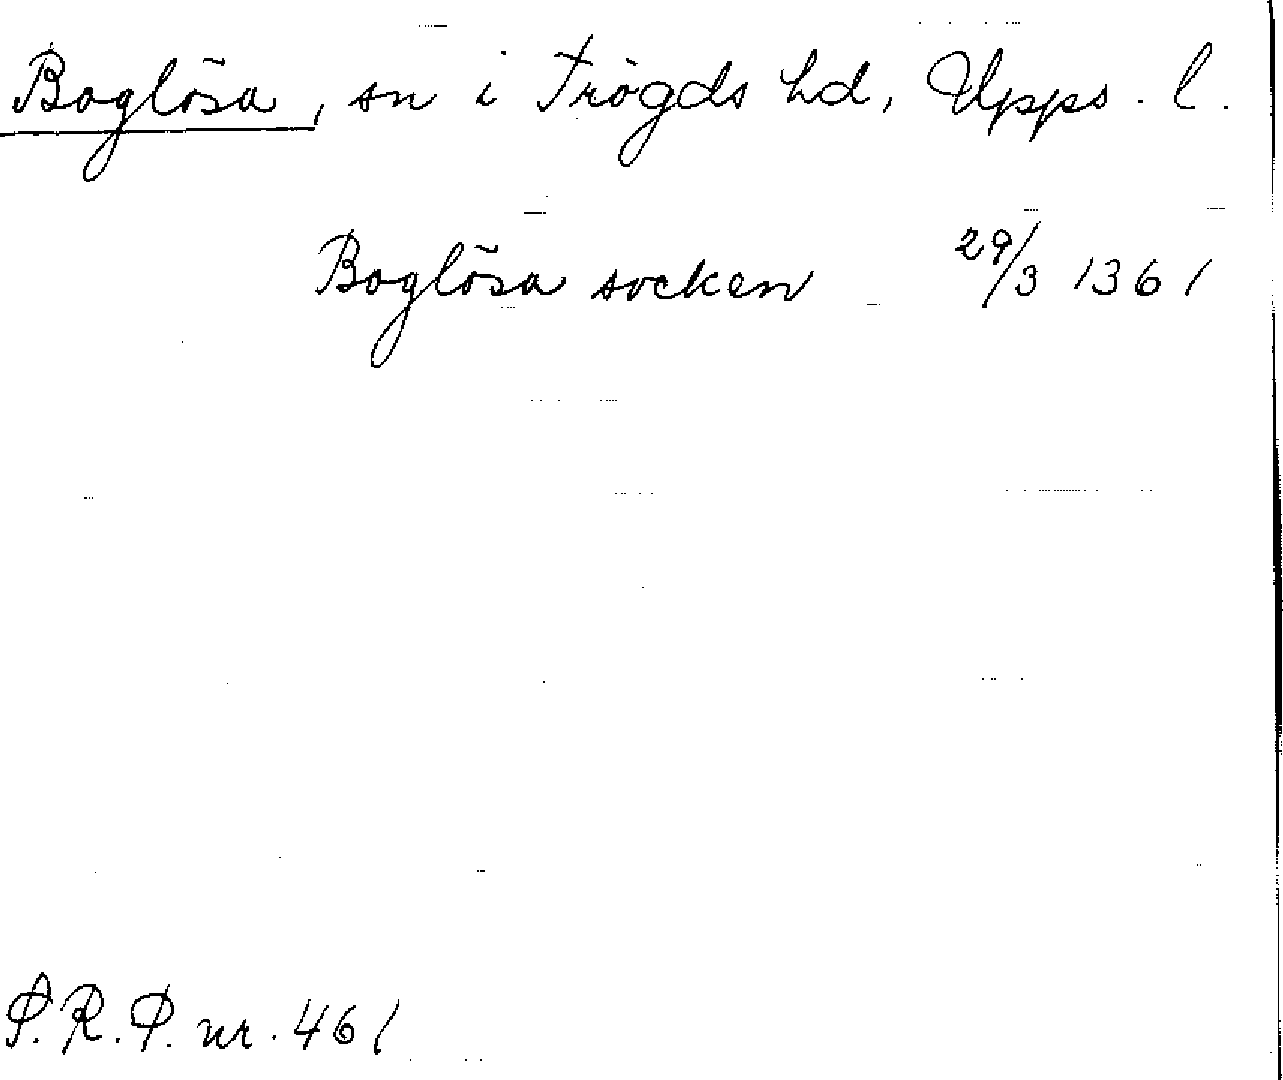 Boglösa, sn i Trögds hd, Upps. l.
Boglösa socken 29/3 1361
S.R.P. nr. 461